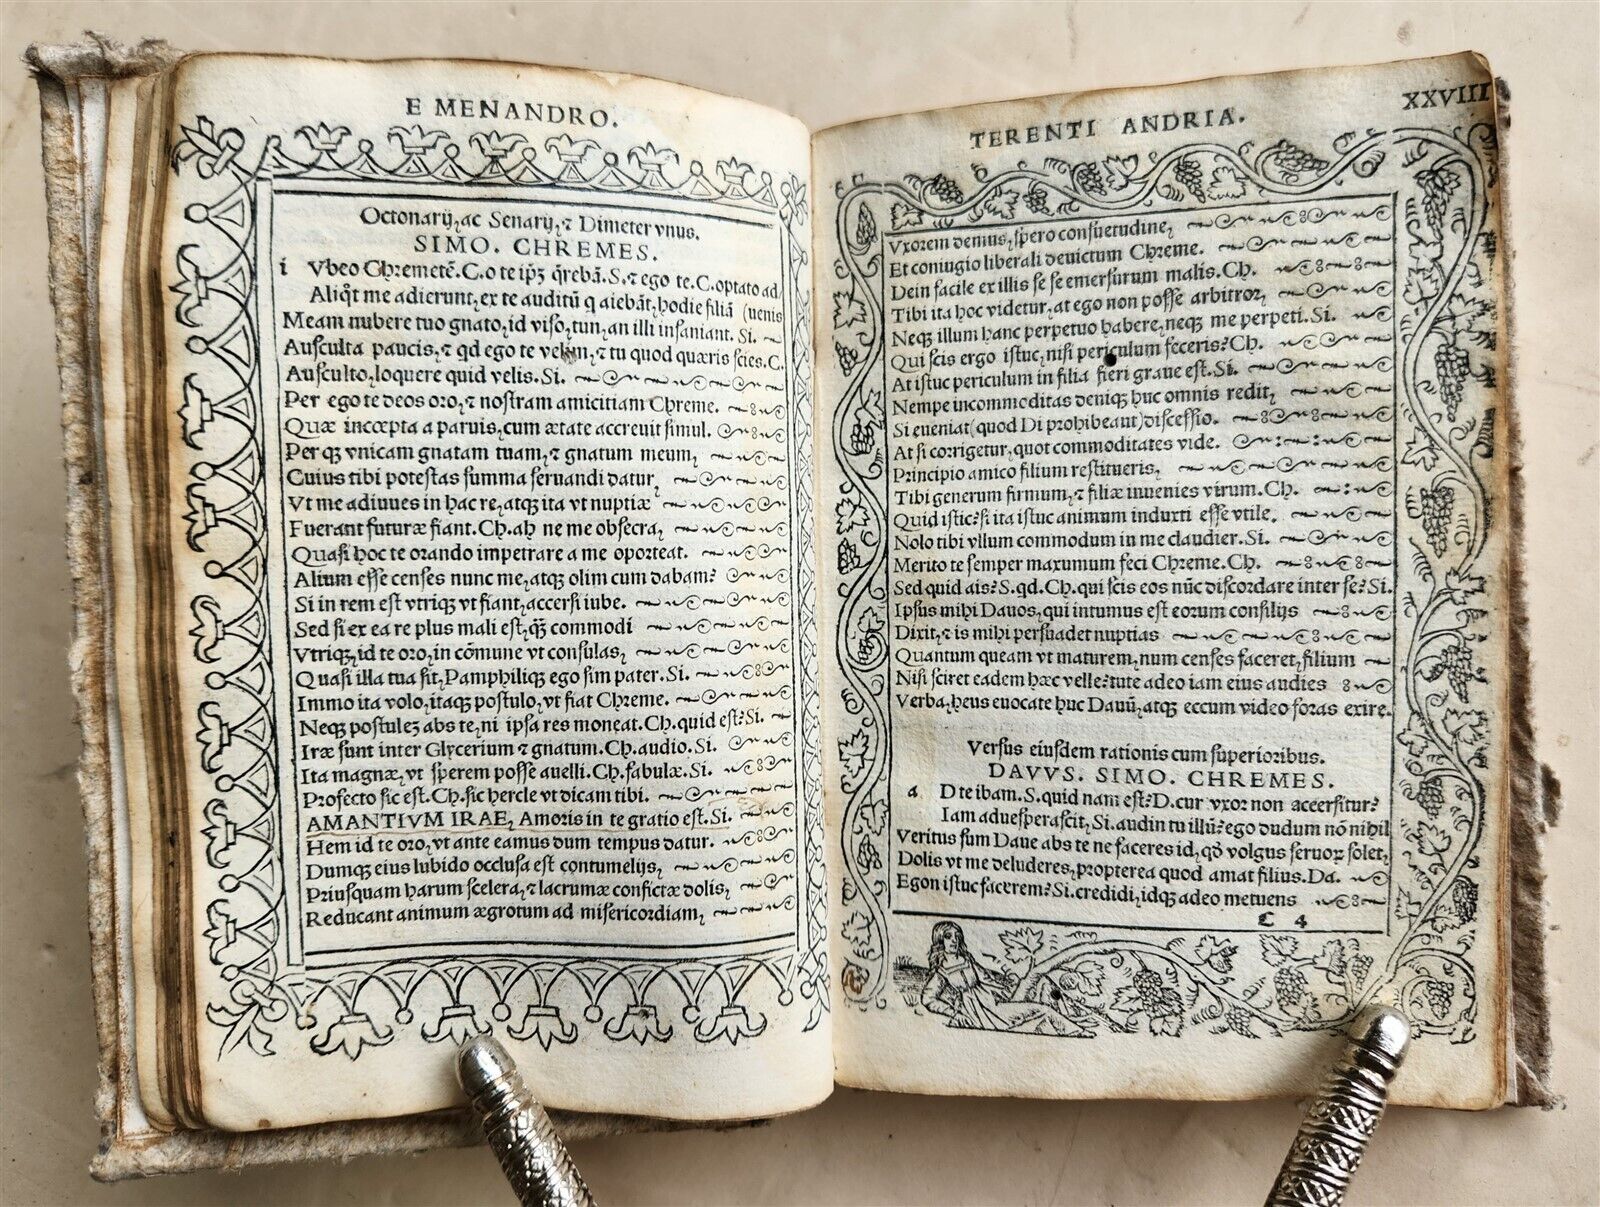 E MENANDRO.
Octonarij, ac Senarij, & Dimeter vnus.
SIMO. CHREMES.
i Vbeo Chremetē. C. o te ipꝫ q̄rebā. S. & ego te. C. optato ad/
Aliq̄t me adierunt, ex te auditū q aiebāt, hodie filiā (uenis
Meam nubere tuo gnato, id viso, tun, an illi insaniant. Si.
Ausculta paucis, & qd ego te velim, & tu quod quæris scies. C.
Ausculto, loquere quid velis. Si.
Per ego te deos oro, & nostram amicitiam Chreme.
Quæ incœpta a paruis, cum ætate accreuit simul.
Per qꝫ vnicam gnatam tuam, & gnatum meum,
Cuius tibi potestas summa seruandi datur,
Vt me adiuues in hac re, atqꝫ ita vt nuptiæ
Fuerant futuræ fiant. Ch. ah ne me obsecra,
Quasi hoc te orando impetrare a me oporteat.
Alium esse censes nunc me, atqꝫ olim cum dabam?
Si in rem est vtriqꝫ vt fiant, accersi iube.
Sed si ex ea re plus mali est, q̄ꝫ commodi
Vtriqꝫ, id te oro, in cōmune vt consulas,
Quasi illa tua sit, Pamphiliqꝫ ego sim pater. Si.
Immo ita volo, itaqꝫ postulo, vt fiat Chreme.
Neqꝫ postuleꝫ abs te, ni ipsa res moneat. Ch. quid est? Si.
Iræ sunt inter Glycerium & gnatum. Ch. audio. Si.
Ita magnæ, vt sperem posse auelli. Ch. fabulæ. Si.
Profecto sic est. Ch. sic hercle vt dicam tibi.
AMANTIVM IRAE, Amoris in te gratio est. Si.
Hem id te oro, vt ante eamus dum tempus datur.
Dumqꝫ eius lubido occlusa est contumelijs,
Priusquam harum scelera, & lacrumæ confictæ dolis,
Reducant animum ægrotum ad misericordiam,
TERENTI ANDRIA.
XXVIII
Vxorem demus, spero consuetudine,
Et coniugio liberali deuictum Chreme.
Dein facile ex illis se se emersurum malis. Ch.
Tibi ita hoc videtur, at ego non posse arbitror,
Neqꝫ illum hanc perpetuo habere, neqꝫ me perpeti. Si.
Qui scis ergo istuc, nisi periculum feceris? Ch.
At istuc periculum in filia fieri graue est. Si.
Nempe incommoditas deniqꝫ huc omnis redit,
Si eueniat (quod Di prohibeant) discessio.
At si corrigetur, quot commoditates vide.
Principio amico filium restitueris,
Tibi generum firmum, & filiæ inuenies virum. Ch.
Quid istic? si ita istuc animum induxti esse vtile.
Nolo tibi vllum commodum in me claudier. Si.
Merito te semper maxumum feci Chreme. Ch.
Sed quid ais? S. qd. Ch. qui scis eos nūc discordare inter se? Si.
Ipsus mihi Dauos, qui intumus est eorum consilijs
Dixit, & is mihi persuadet nuptias
Quantum queam vt maturem, num censes faceret, filium
Nisi sciret eadem hæc velle? tute adeo iam eius audies
Verba, heus euocate huc Dauū, atqꝫ eccum video foras exire.
Versus eiusdem rationis cum superioribus.
DAVVS. SIMO. CHREMES.
a D te ibam. S. quid nam est? D. cur vxor non acersitur?
Iam aduesperascit, Si. audin tu illū? ego dudum nō nihil
Veritus sum Daue abs te ne faceres id, qð volgus seruoꝝ solet,
Dolis vt me deluderes, propterea quod amat filius. Da.
Egon istuc facerem? Si. credidi, idqꝫ adeo metuens
C 4